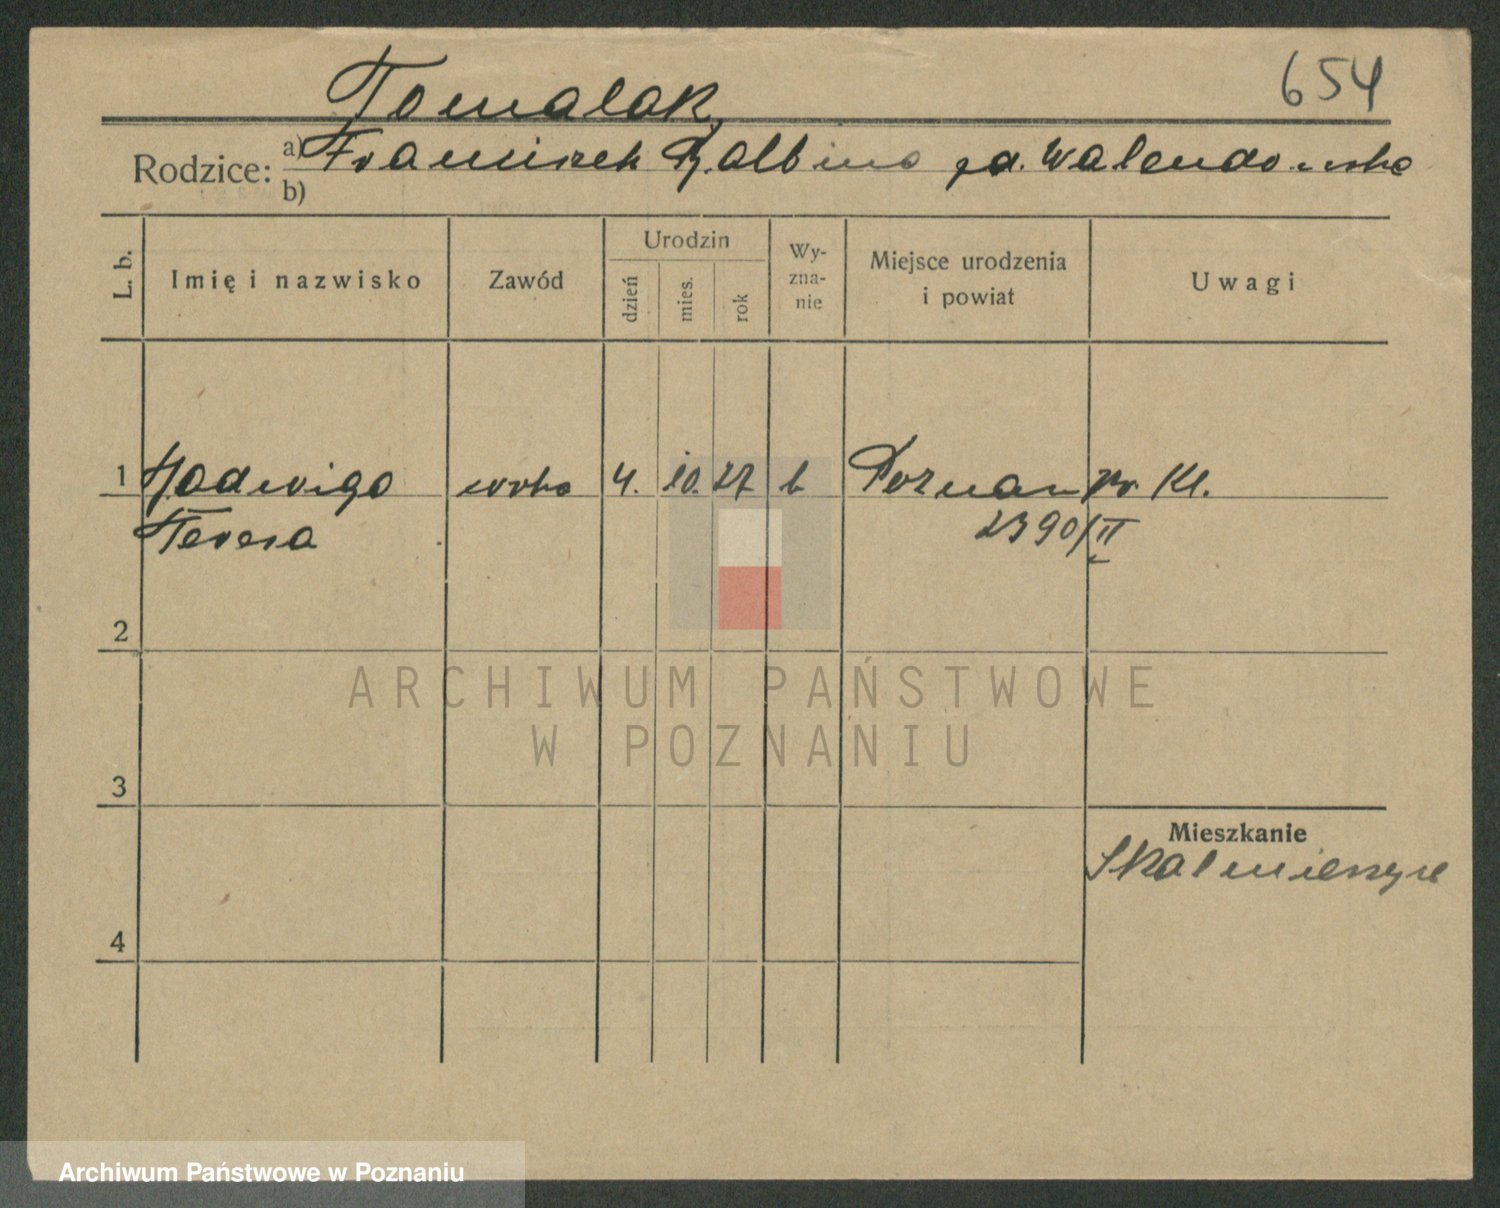 654
Tomalak,
Rodzice: a) Franciszek Balbina zd. Walendowska
b)
L. b.
Imię i nazwisko
Zawód
Urodzin
dzień
mies.
rok
Wy-
zna-
nie
Miejsce urodzenia
i powiat
Uwagi
1 Jadwiga córka 4. 10. 27 k Poznań
Teresa 2390/II
2
ARCHIWUM PAŃSTWOWE
W POZNANIU
3
Mieszkanie
Skalmierzyce
4
Archiwum Państwowe w Poznaniu